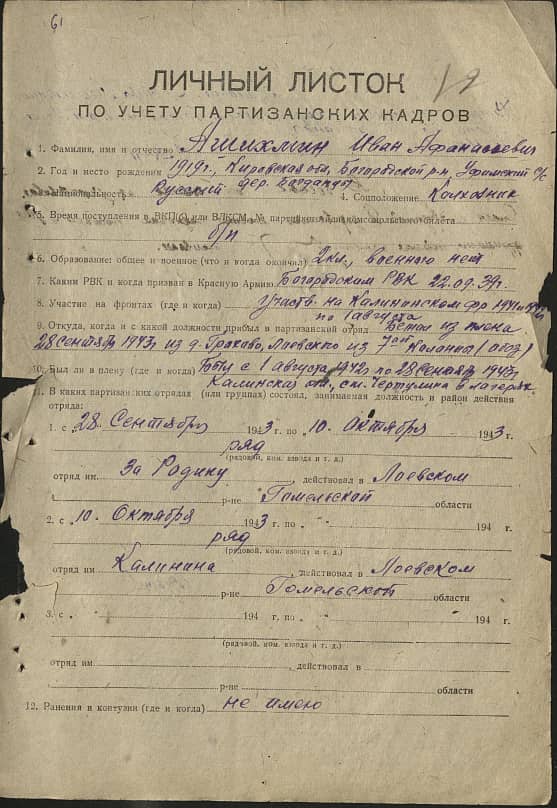 61
ЛИЧНЫЙ ЛИСТОК
ПО УЧЕТУ ПАРТИЗАНСКИХ КАДРОВ
1. Фамилия, имя и отчество Ашихмин Иван Афанасьевич
2. Год и место рождения 1919г, Кировская обл, Богородской р-н, Уфимский с/с
русский дер. 4. Соцположение Колхозник
5. Время поступления в ВКП(б) или ВЛКСМ, № партийного или комсомольского билета
б/п
6. Образование: общее и военное (что и когда окончил) 2кл., военного нет
7. Каким РВК и когда призван в Красную Армию Богородским РВК 22.09.39г.
8. Участие на фронтах (где и когда) Участв. на Калининском фр 1941
по 1 августа
9. Откуда, когда и с какой должности прибыл в партизанский отряд Бежал из плена
28 сентября 1943, из д. Лоевского из 7
10. Был ли в плену (где и когда) Был с 1 августа 1942 по 28 сентября 1943г
ст. Чертулина в лагерях
11. В каких партизанских отрядах (или группах) состоял, занимаемая должность и район действия
отряда:
1. с 28 Сентября 1943 г. по 10 Октября 1943 г.
ряд
(рядовой, ком. взвода и т. д.)
отряд им За Родину действовал в Лоевском
р-не Гомельской области
2. с 10 Октября 1943 г. по 194 г.
ряд
(рядовой, ком. взвода и т. д.)
отряд им Калинина, действовал в Лоевском
р-не Гомельской области
3. с 194 г. по 194 г.
(рядовой, ком. взвода и т. д.)
отряд им. действовал в
р-не области
12. Ранения и контузии (где и когда) не имею